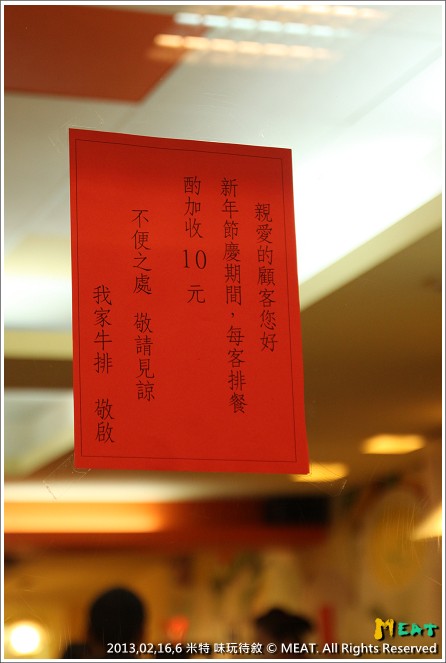 親愛的顧客您好
新年節慶期間，每客排餐
酌加收 10 元
不便之處 敬請見諒
我家牛排 敬啟
MEAT
2013,02,16,6 米特 味玩待敘 © MEAT. All Rights Reserved